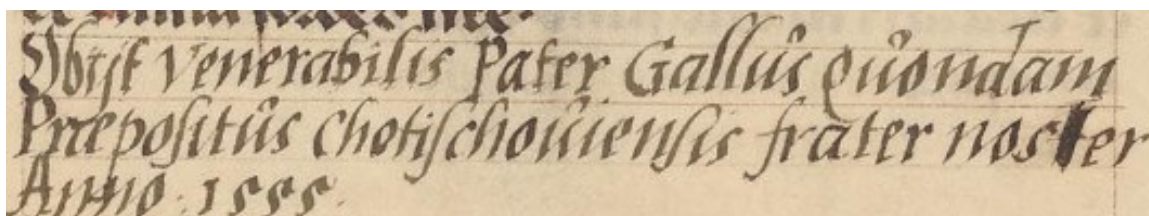 Obijt venerabilis Pater Gallus quondam
Præpositus Chotischouiensis frater noster
Anno. 1555.